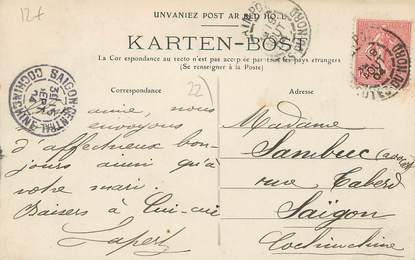 12f
UNVANIEZ POST AR BED HOLL
KARTEN-BOST
La Correspondance au recto n'est pas acceptée par tous les pays étrangers
(Se renseigner à la Poste)
Correspondance
Adresse
22
SAIGON-CENTRAL
COCHINCHINE
amie, nous
envoyons
d'affectueux bon-
jours ainsi qu'à
votre mari.
Baisers à Cui-cui
Lapert
Madame
Sambuc
rue Taberd
Saïgon
Cochinchine